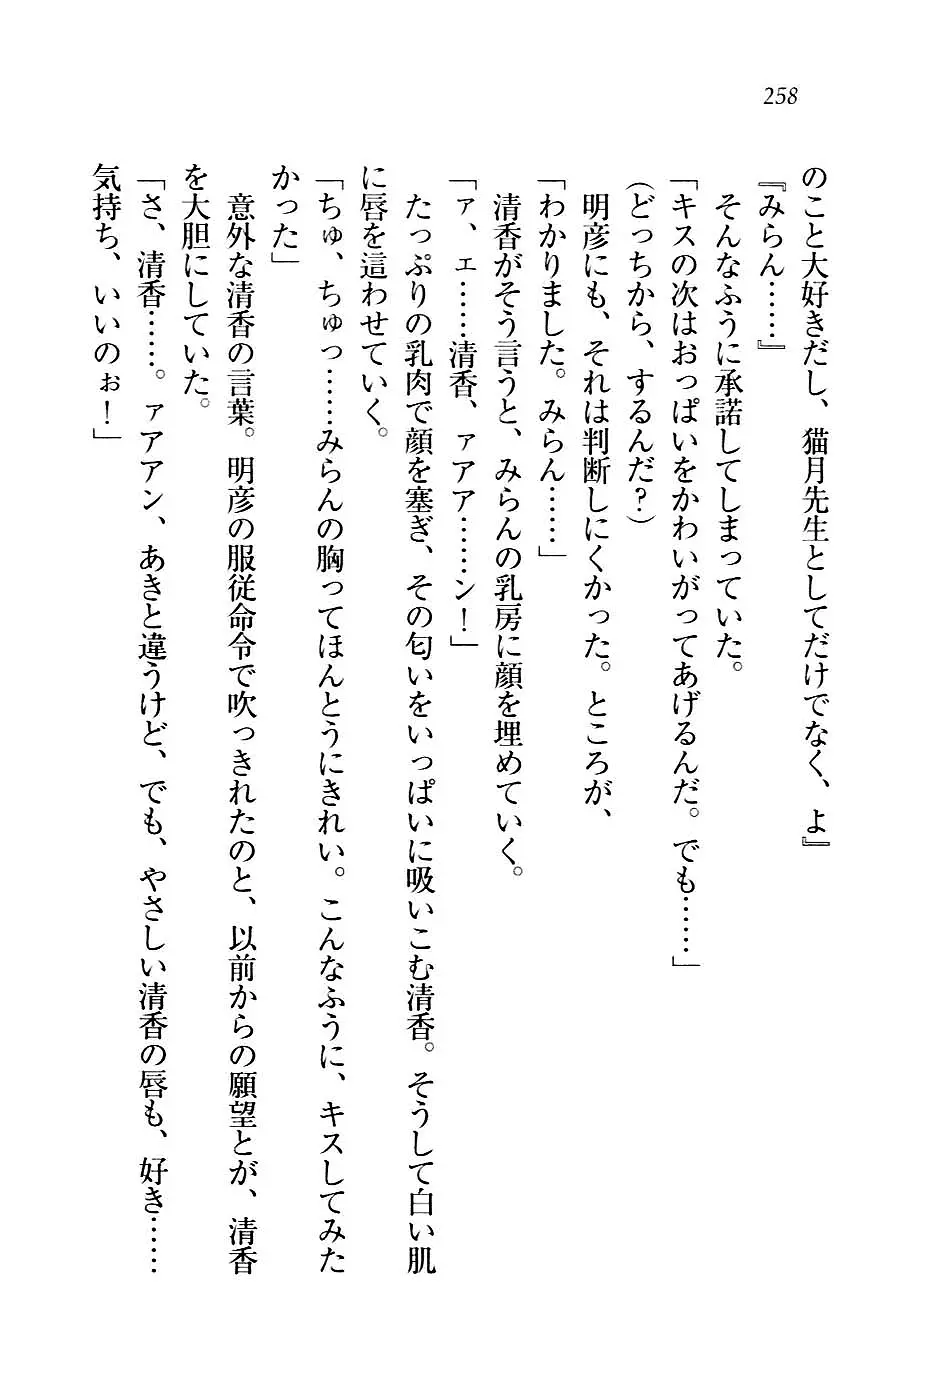 258
のこと大好きだし、猫月先生としてだけでなく、よ』
『みらん……』
そんなふうに承諾してしまっていた。
「キスの次はおっぱいをかわいがってあげるんだ。でも……」
（どっちから、するんだ？）
明彦にも、それは判断しにくかった。ところが、
「わかりました。みらん……」
清香がそう言うと、みらんの乳房に顔を埋めていく。
「ァ、ェ……清香、ァアア……ン！」
たっぷりの乳肉で顔を塞ぎ、その匂いをいっぱいに吸いこむ清香。そうして白い肌
に唇を這わせていく。
「ちゅ、ちゅっ……みらんの胸ってほんとうにきれい。こんなふうに、キスしてみた
かった」
意外な清香の言葉。明彦の服従命令で吹っきれたのと、以前からの願望とが、清香
を大胆にしていた。
「さ、清香……。ァアアン、あきと違うけど、でも、やさしい清香の唇も、好き……
気持ち、いいのぉ！」